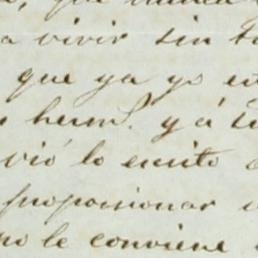 que nunca
a vivir sin
que ya yo
herm.! y á
vió lo escrito
proporcionar
no le conviene